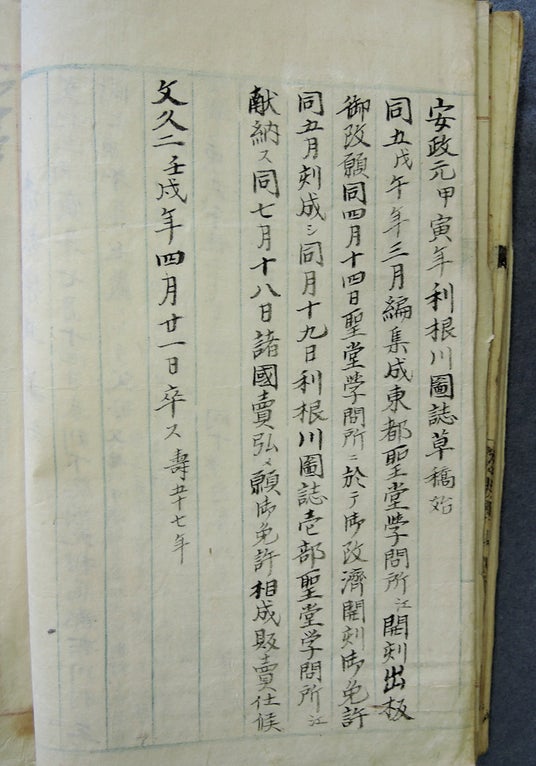 安政元甲寅年利根川圖誌草稿始
同五戊午年三月編集成東都聖堂学問所江開刻出板
御改願同四月十四日聖堂学問所ニ於テ御改濟開刻御免許
同五月刻成シ同月十九日利根川圖誌壱部聖堂学問所江
献納ス同七月十八日諸國賣弘メ願御免許相成販賣仕候
文久二壬戌年四月廿一日卒ス壽五十七年